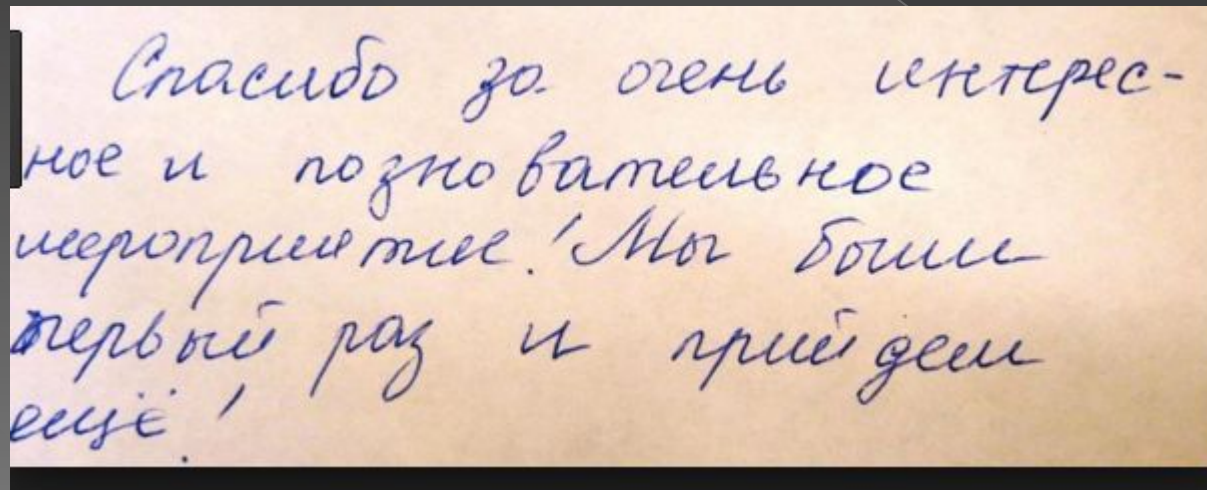 Спасибо за очень интерес-
ное и позновательное
мероприятие! Мы были
первый раз и прийдем
ещё!